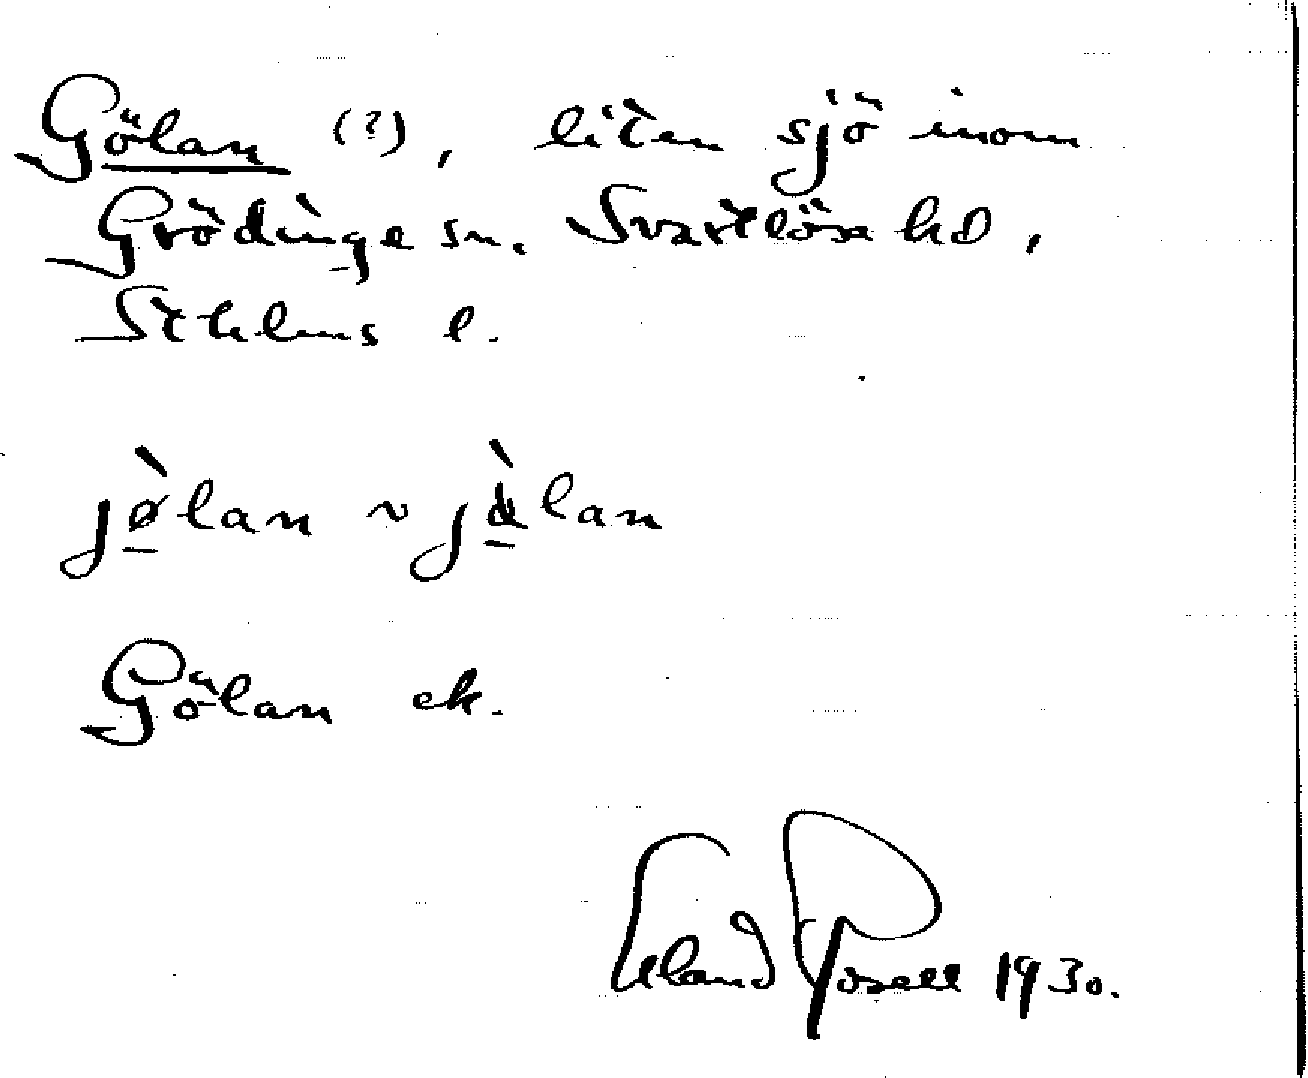 Gölan (?), liten sjö inom
Grödinge sn. Svartlösa hd,
Sthlms l.
jø̀lan ~ jὰlan
Gölan ek.
Erland Rosell 1930.